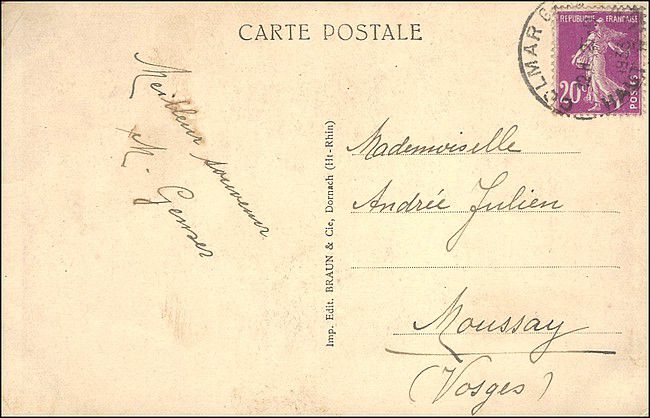 CARTE POSTALE
COLMAR G
REPUBLIQUE FRANÇAISE
20c
POSTES
Meilleur souvenir
Mademoiselle
Andrée Julien
Moussay
(Vosges)
Imp. Edit. BRAUN & Cie, Dornach (Ht-Rhin)